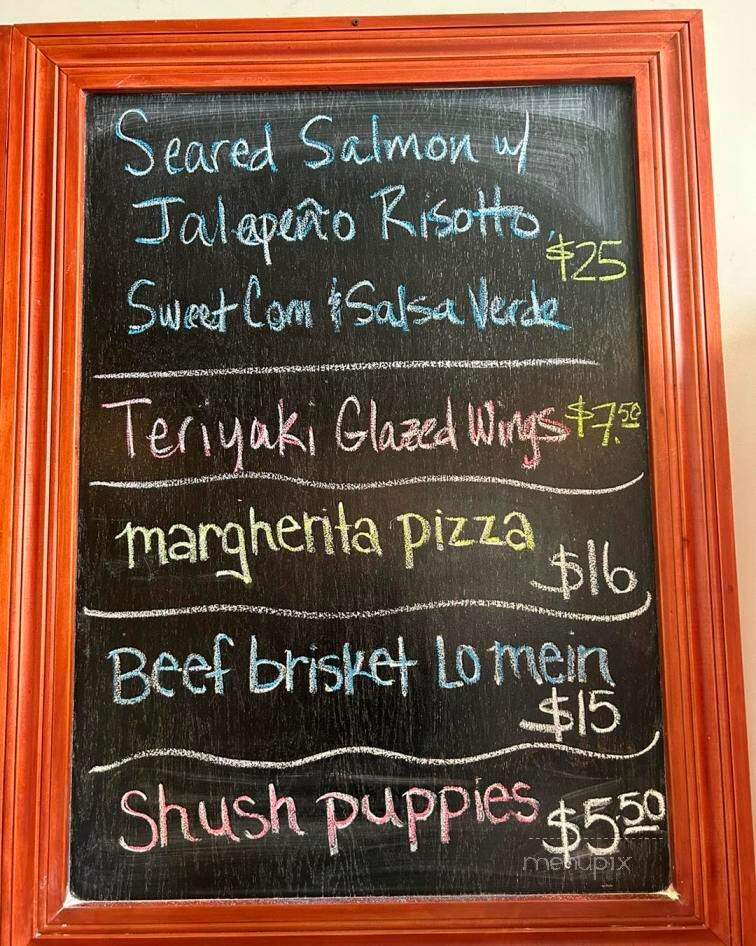 Seared Salmon w/
Jalapeño Risotto,
$25
Sweet Corn & Salsa Verde
Teriyaki Glazed Wings $7.50
margherita pizza
$16
Beef brisket Lo mein
$15
Shush puppies $5.50
menupix